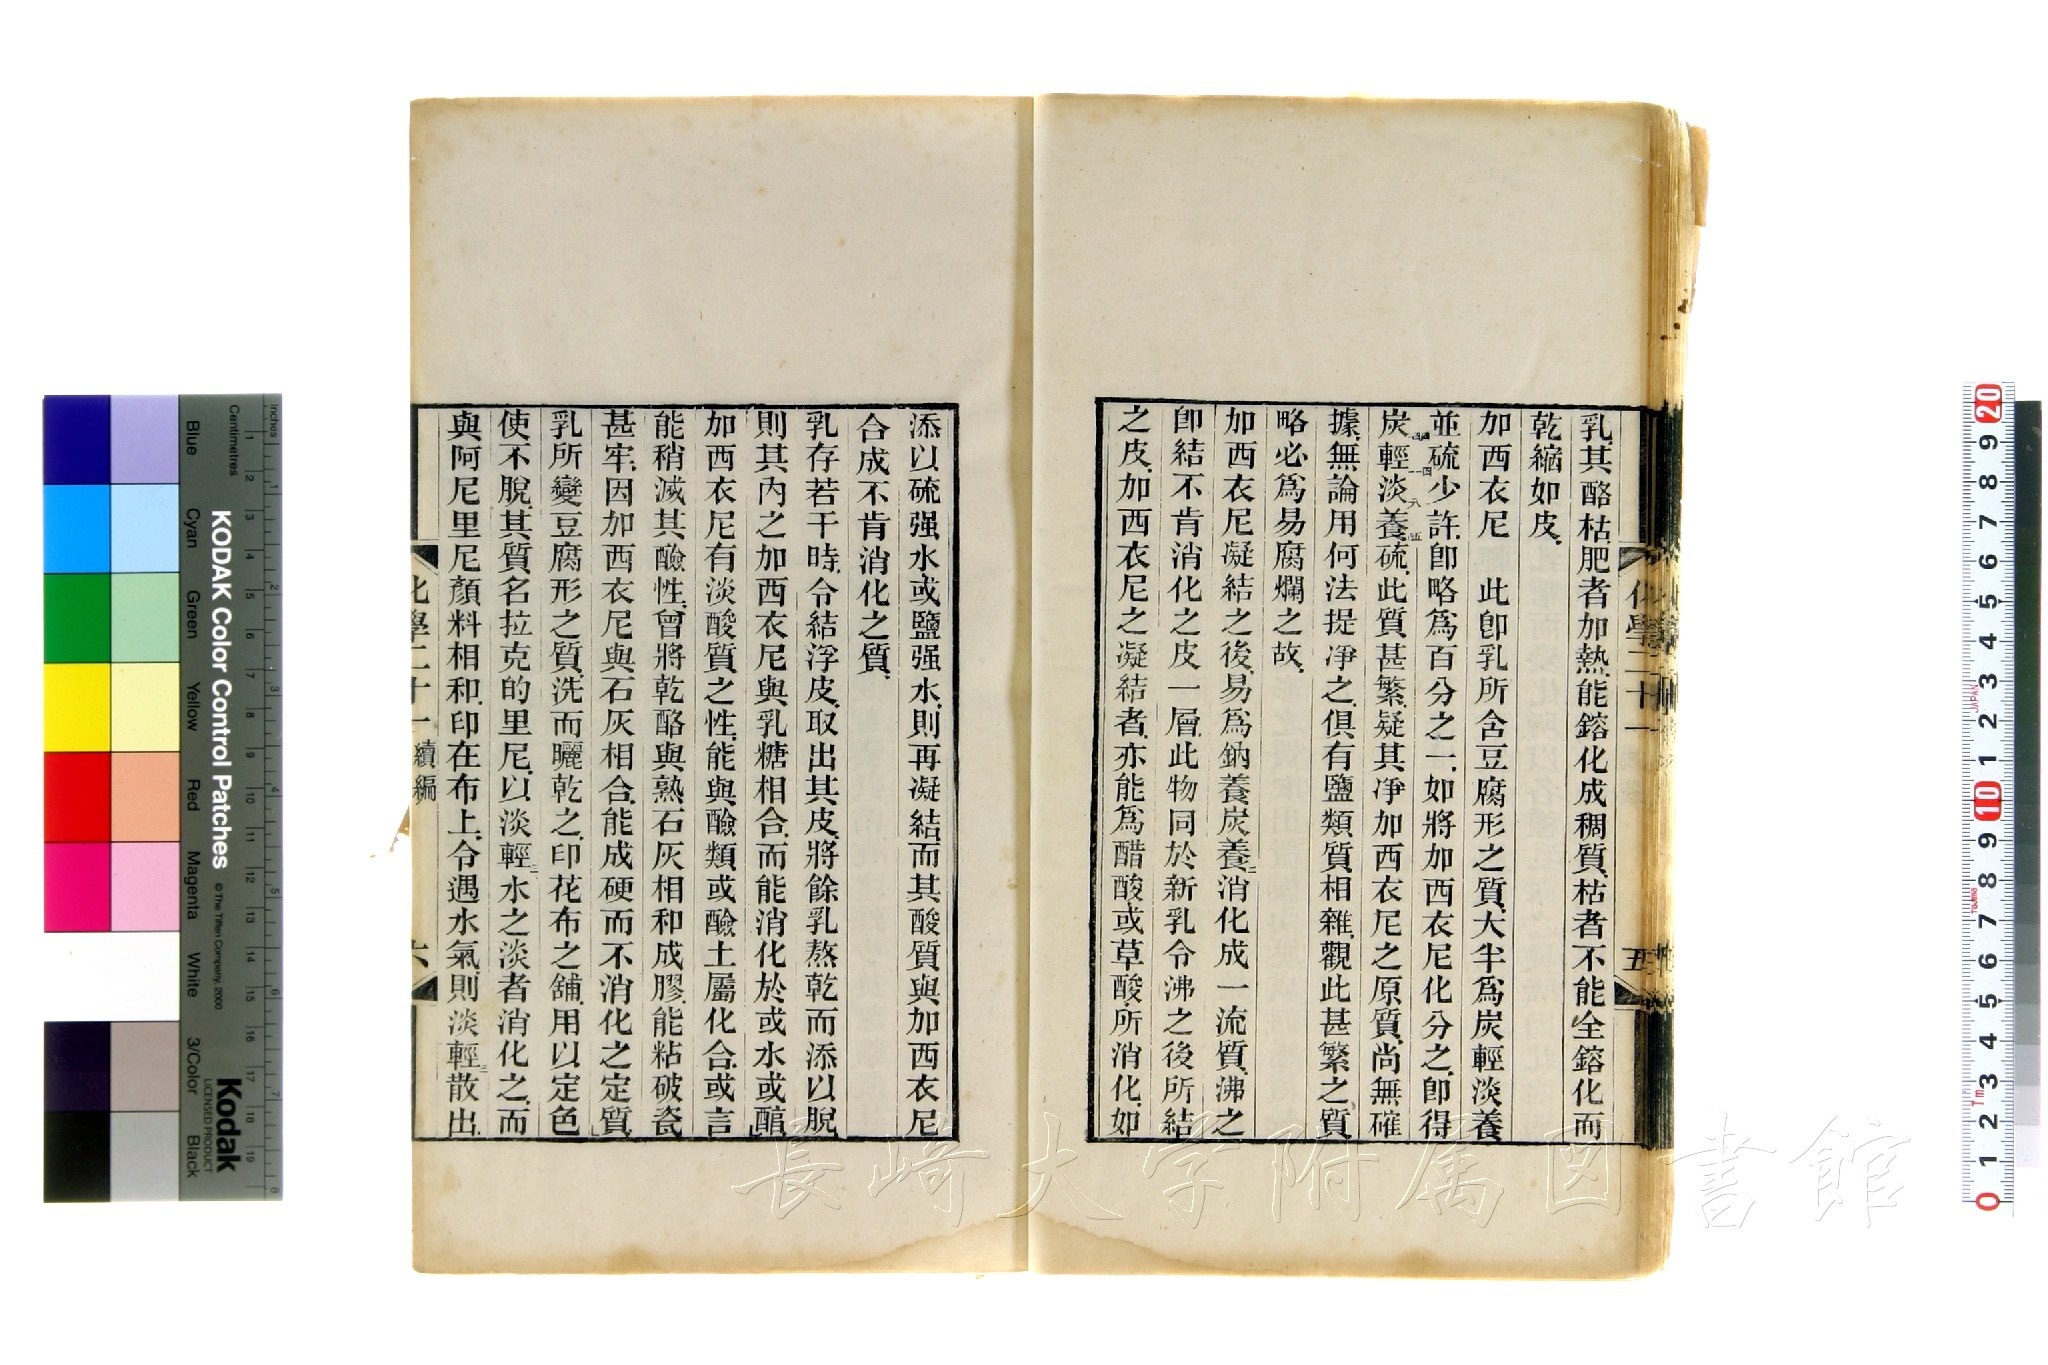 乳其酪枯肥者加熱能鎔化成稠質枯者不能全鎔化而
乾縮如皮
加西衣尼 此卽乳所含豆腐形之質大半爲炭輕淡養
並硫少許卽略爲百分之一如將加西衣尼化分之卽得
炭輕淡養硫此質甚繁疑其凈加西衣尼之原質尚無確
據無論用何法提凈之俱有鹽類質相雜觀此甚繁之質
略必爲易腐爛之故
加西衣尼凝結之後易爲鈉養炭養二消化成一流質沸之
卽結不肯消化之皮一層此物同於新乳令沸之後所結
之皮加西衣尼之凝結者亦能爲醋酸或草酸所消化如
化學二十一
五
添以硫强水或鹽强水則再凝結而其酸質與加西衣尼
合成不肯消化之質
乳存若干時令結浮皮取出其皮將餘乳熬乾而添以脫
則其內之加西衣尼與乳糖相合而能消化於或水或醕
加西衣尼有淡酸質之性能與鹼類或鹼土屬化合或言
能稍滅其鹼性曾將乾酪與熟石灰相和成膠能粘破瓷
甚牢因加西衣尼與石灰相合能成硬而不消化之定質
乳所變豆腐形之質洗而曬乾之印花布之舖用以定色
使不脫其質名拉克的里尼以淡輕三水之淡者消化之而
與阿尼里尼顏料相和印在布上令遇水氣則淡輕三散出
化學二十一 續編
六
KODAK Color Control Patches
Kodak
LICENSED PRODUCT
© The Tiffen Company, 2000
Inches
Centimetres
Blue
Cyan
Green
Yellow
Red
Magenta
White
3/Color
Black
長崎大学附属図書館